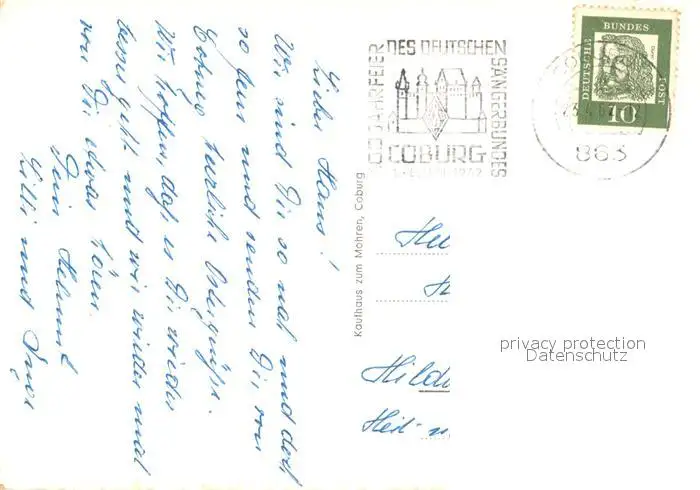 Lieber Hans!
Wir sind Dir so nah und doch
so fern und senden Dir von
Coburg herzliche Ostergrüße.
Wir hoffen, daß es Dir wieder
besser geht und wir wieder mal
von Dir etwas hören.
Dein Helmut
Lilli und Inge
Kaufhaus zum Mohren, Coburg
100 JAHRFEIER
DES DEUTSCHEN
SÄNGERBUNDES
COBURG
863
DEUTSCHE
BUNDES
POST
10
He
Hild
Heil-
privacy protection
Datenschutz